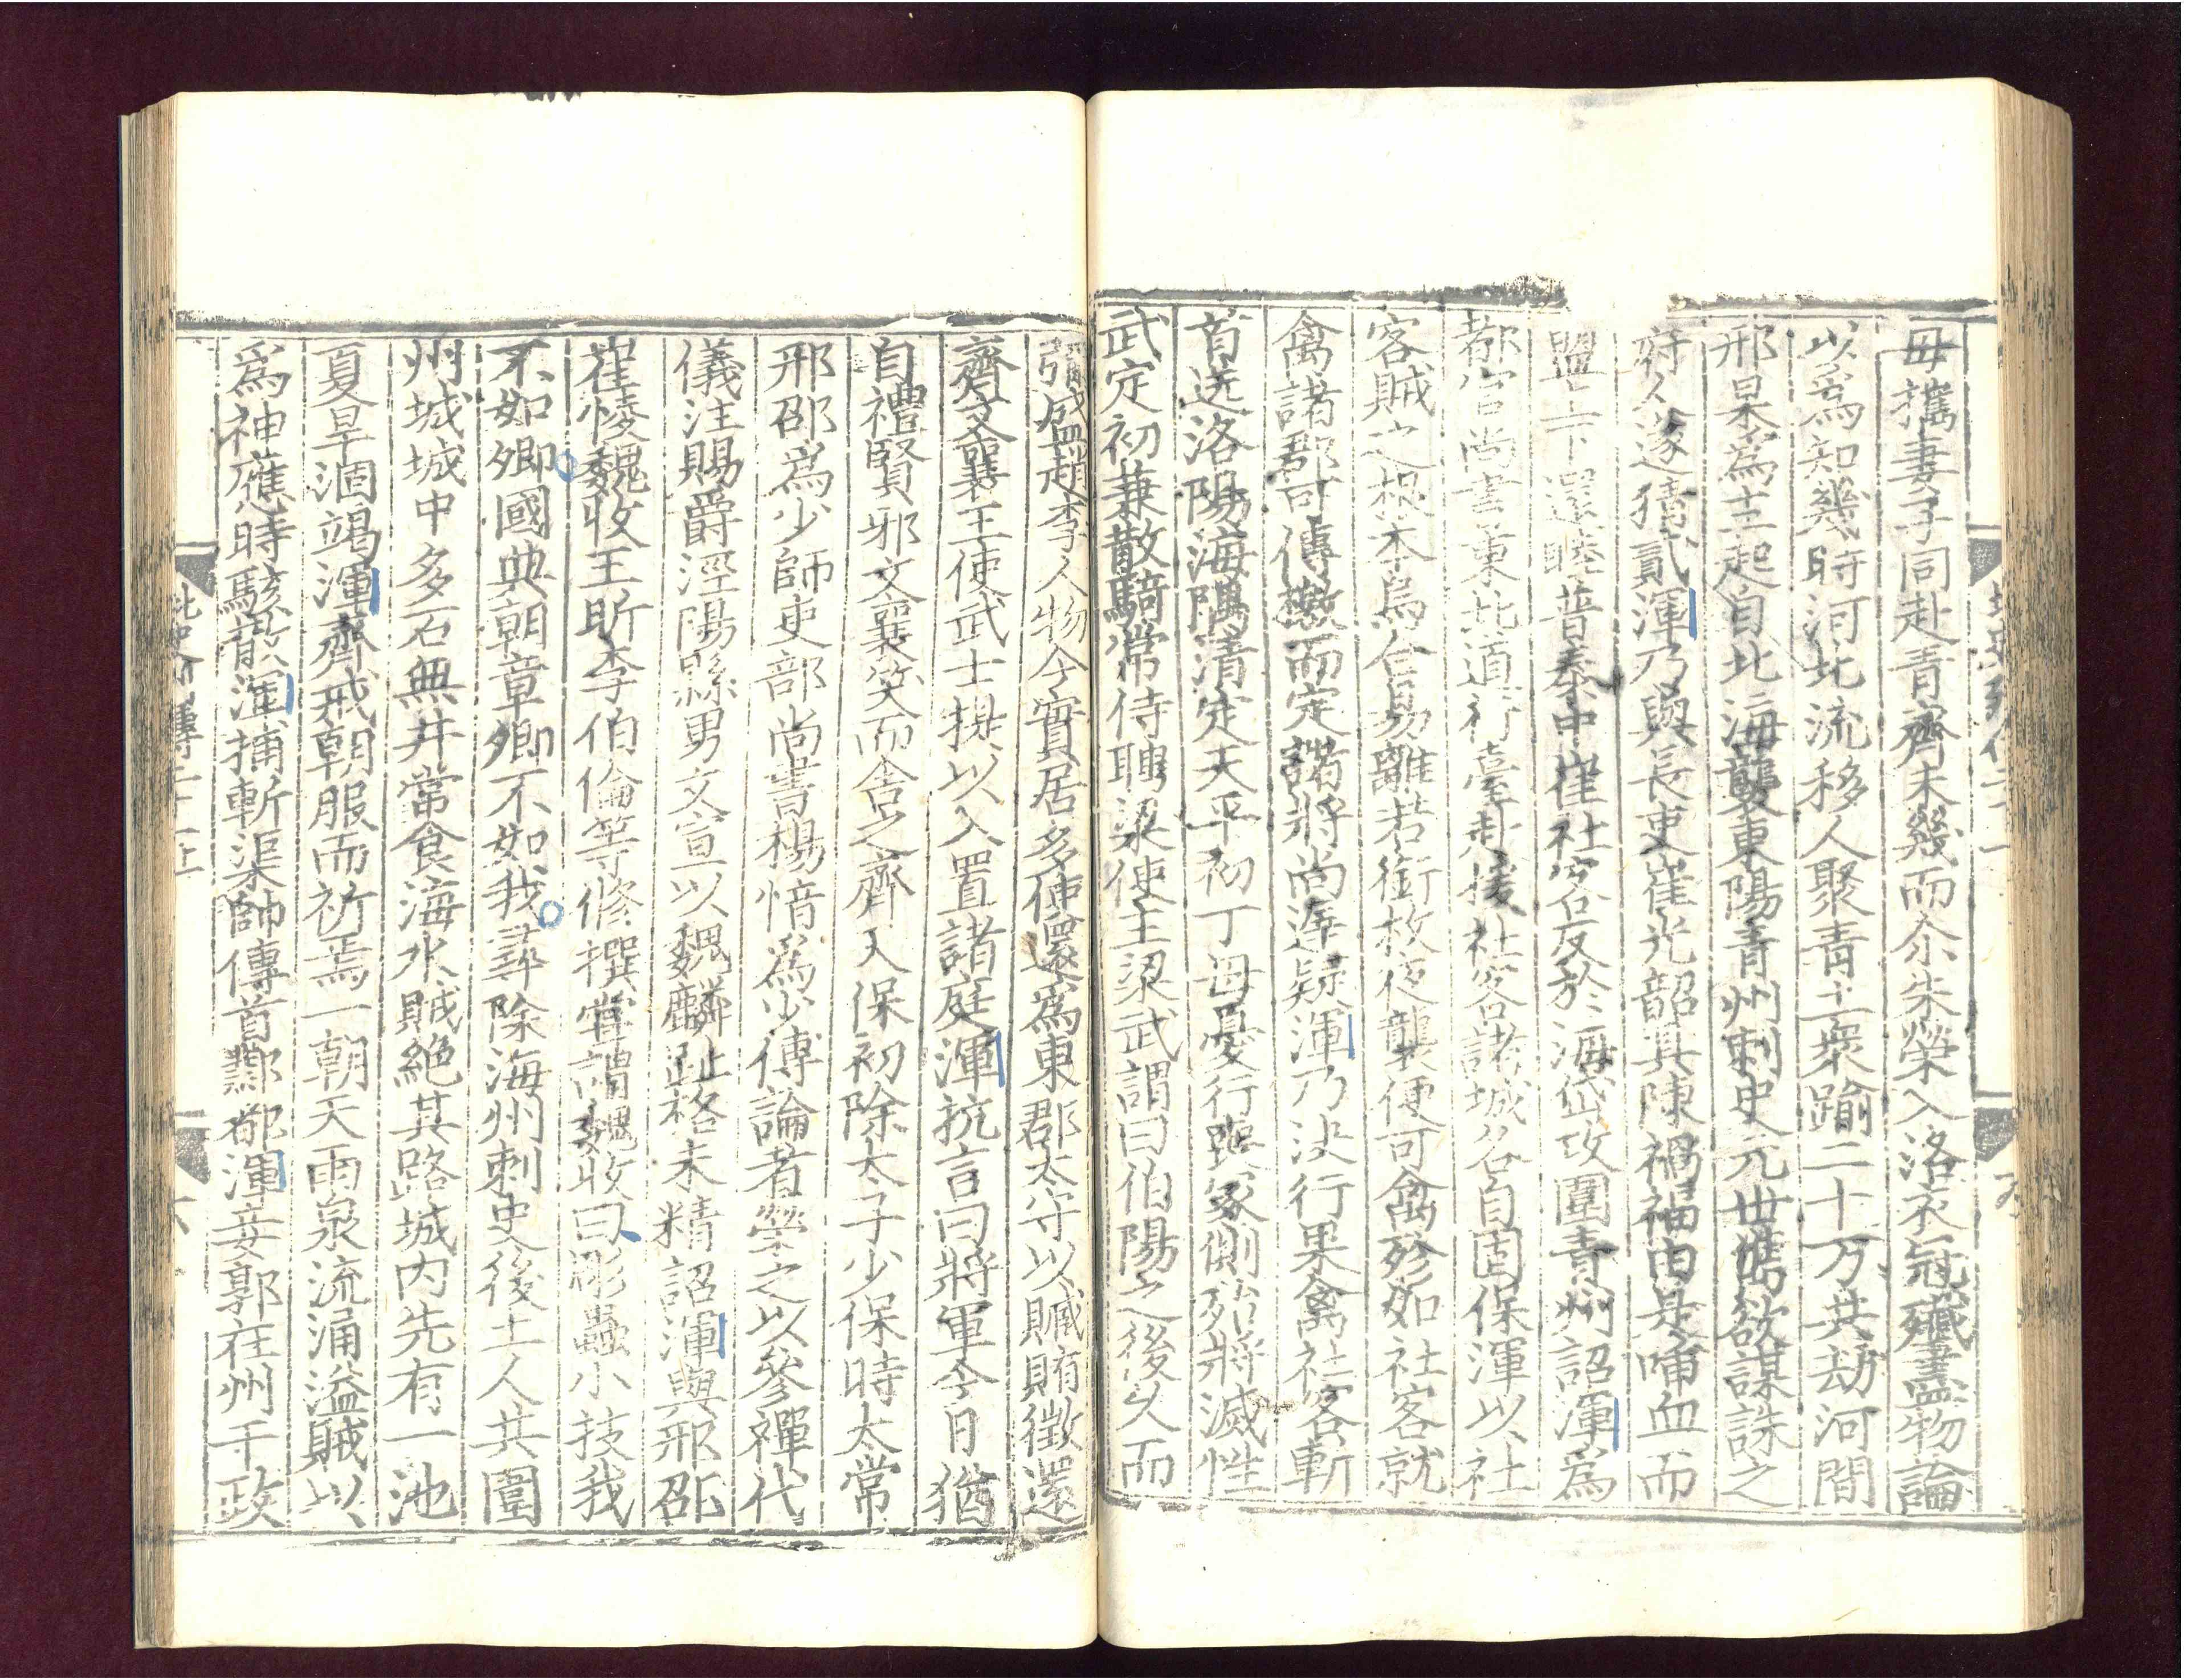 母攜妻子同赴青齊未幾而尒朱榮入洛衣冠殲盡物論
以爲知幾時河北流移人聚青土衆踰二十万共劫河間
邢杲爲主起自北海襲東陽青州刺史元世儁欲謀誅之
府人遂猜貳渾乃與長吏崔光韶具陳禍福由是唾血而
盟上下還睦普泰中崔社客反於海岱攻圍青州詔渾爲
都官尚書東北道行臺赴援社客諸城各自固保渾以社
客賊之根本烏合易離若銜枚夜襲便可禽殄如社客就
禽諸郡可傳檄而定諸將尚遲疑渾乃決行果禽社客斬
首送洛陽海隅清定天平初丁母憂行喪冢側殆將滅性
武定初兼散騎常侍聘梁使主梁武謂曰伯陽之後久而
彌盛趙李人物今實居多使還爲東郡太守以贓賄徵還
齊文襄王使武士提以入置諸庭渾抗言曰將軍今日猶
自禮賢邪文襄笑而舍之齊天保初除太子少保時太常
邢邵爲少師吏部尚書楊愔爲少傅論者榮之以參禪代
儀注賜爵涇陽縣男文宣以魏麟趾格未精詔渾與邢邵
崔㥄魏收王昕李伯倫等修撰嘗謂魏收曰彫蟲小技我
不如卿國典朝章卿不如我尋除海州刺史後土人共圍
州城城中多石無井常食海水賊絶其路城內先有一池
夏旱涸竭渾齋戒朝服而祈焉一朝天雨泉流涌溢賊以
爲神應時駭散渾捕斬渠帥傳首鄴都渾妾郭在州干政